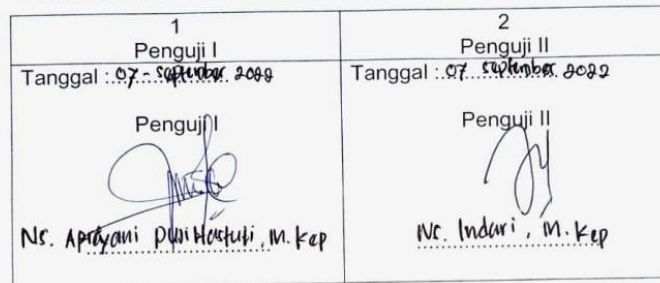 1
Penguji I
Tanggal : 07 - September 2022
Penguji I
Ns. Apriyani Puji Hastuti, M. Kep
2
Penguji II
Tanggal : 07 September 2022
Penguji II
Ns. Indari, M. Kep